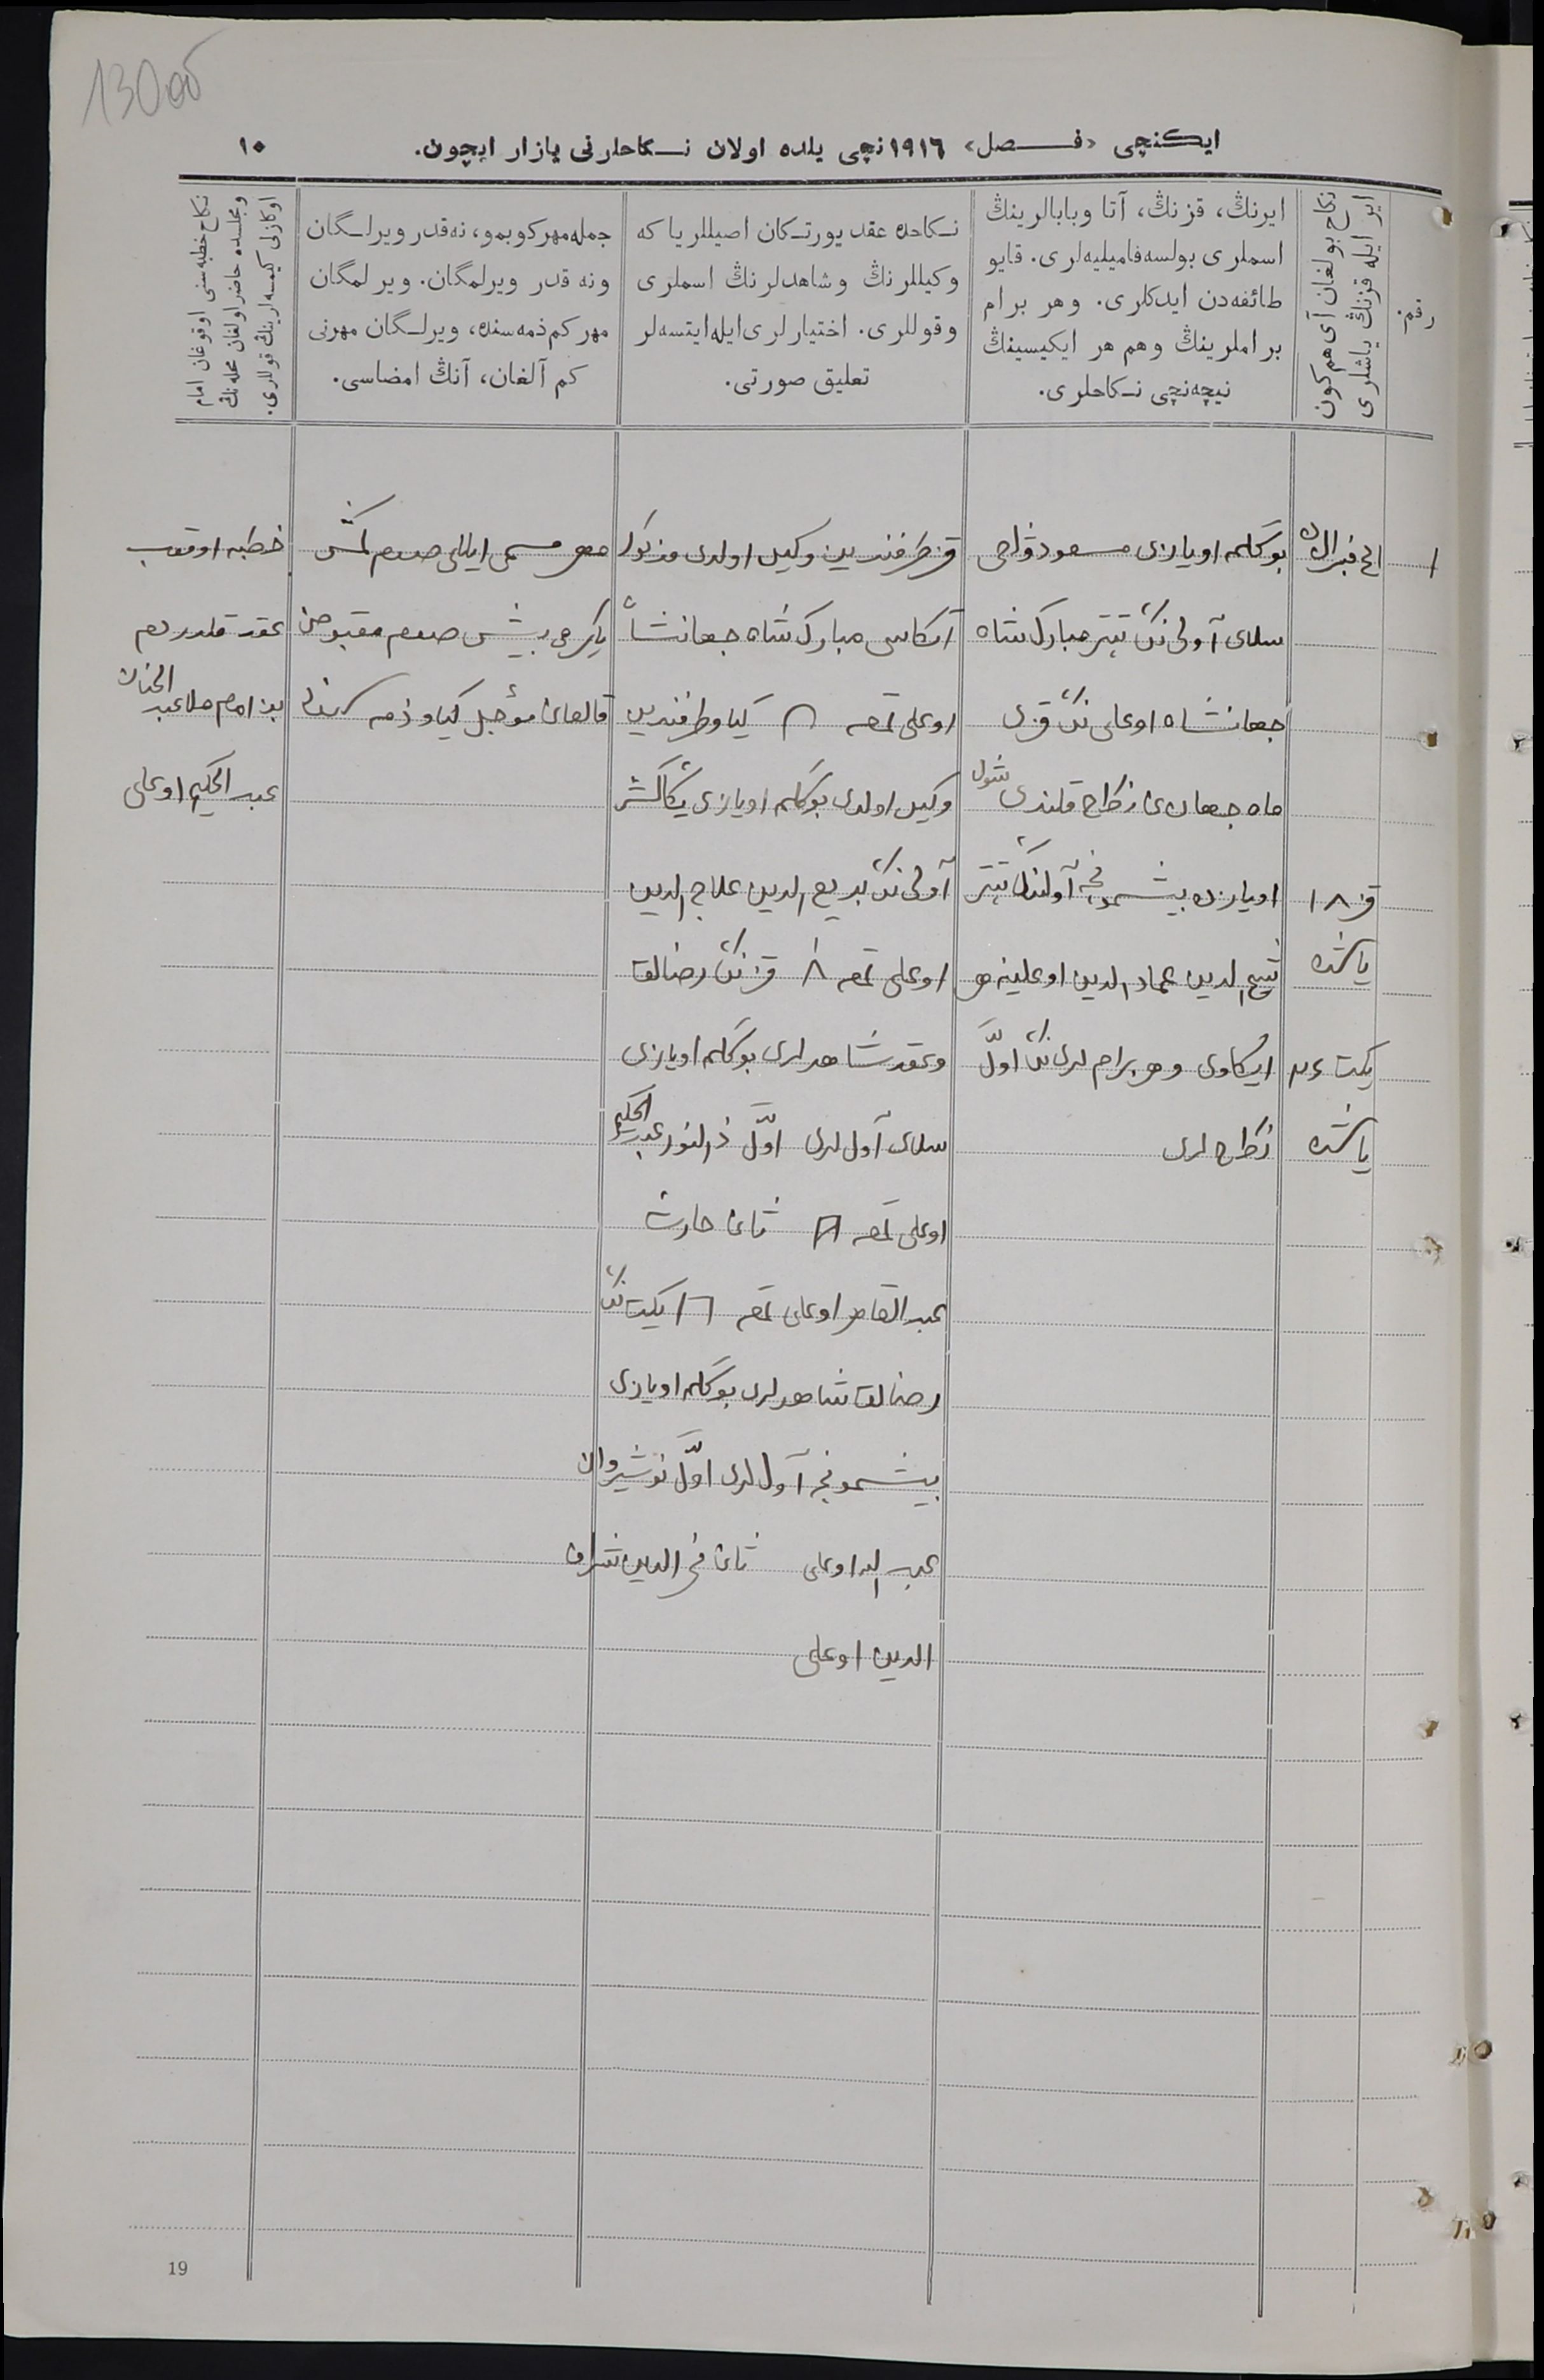 130об
ایکنچی «فصل» ١٩١٦نچی یلده اولان نکاحلرنی یازار ایچون.
١٠
رقم.
نکاح بولغان آی هم کون
ایر ایله قزنڭ یاشلری
ایرنڭ، قزنڭ، آتا وبابالرینڭ
اسملری بولسه فامیلیه‌لری. قایو
طائفه‌دن ایدکلری. وهر برام
بر املرینڭ وهم هر ایکیسینڭ
نیچه‌نچی نکاحلری.
نکاحده عقد یورتکان اصیللر یا که
وکیللرنڭ وشاهدلرنڭ اسملری
وقوللری. اختیارلری ایله ایتسه‌لر
تعلیق صورتی.
جمله مهر کوبمو، نه‌قدر ویرلگان
ونه قدر ویرلمگان. ویرلمگان
مهر کم ذمه‌سنده، ویرلگان مهرنی
کم آلغان، آنڭ امضاسی.
نکاح خطبه‌سنی اوقوغان امام
ومجلسده حاضر اولغان محله‌نڭ
اوکازلی کیمسه‌لرینڭ قوللری.
١
قز ١٨
یاشنده
یکت ٢٤
یاشنده
بوگلمه اویازی مسعود
سلای آولی نڭ تبتر مبارک شاه
جهانشاه اوغلی نڭ قزی
ماه جهان نکاح قلندی شول
اویازده بیشمونچه آولنڭ تبتر
الدین عماد الدین اوغلینه هر
ایکاوی وهر برام لری نڭ اوّل
نکاح لری
قز طرفندین وکیل اولدی مذکور
آتکاسی مبارک شاه جهانشاه
اوغلی تمغه کیاو طرفندین
وکیل اولدی بوگلمه اویازی
آولی نڭ بدیع الدین علاج الدین
اوغلی تمغه قزنڭ رضالق
وعقد شاهدلری بوگلمه اویازی
سلای آول لری اوّل ذالنور عبد الحکیم
اوغلی تمغه ثانی حارث
عبد القاهر اوغلی تمغه یکت نڭ
رضالق شاهدلری بوگلمه اویازی
بیشمونچه آول لری اوّل نوشیروان
عبد الله اوغلی ثانی فخر الدین شرف
الدین اوغلی
مهر مسمی ایللی صوم کمش
یکرمی بیش صوم مقبوض
قالغانی مؤجل کیاو ذمه سنده
خطبه اوقوب
عقد قلدردم
بن امام ملا عبد الحنان
عبد الحکیم اوغلی
19